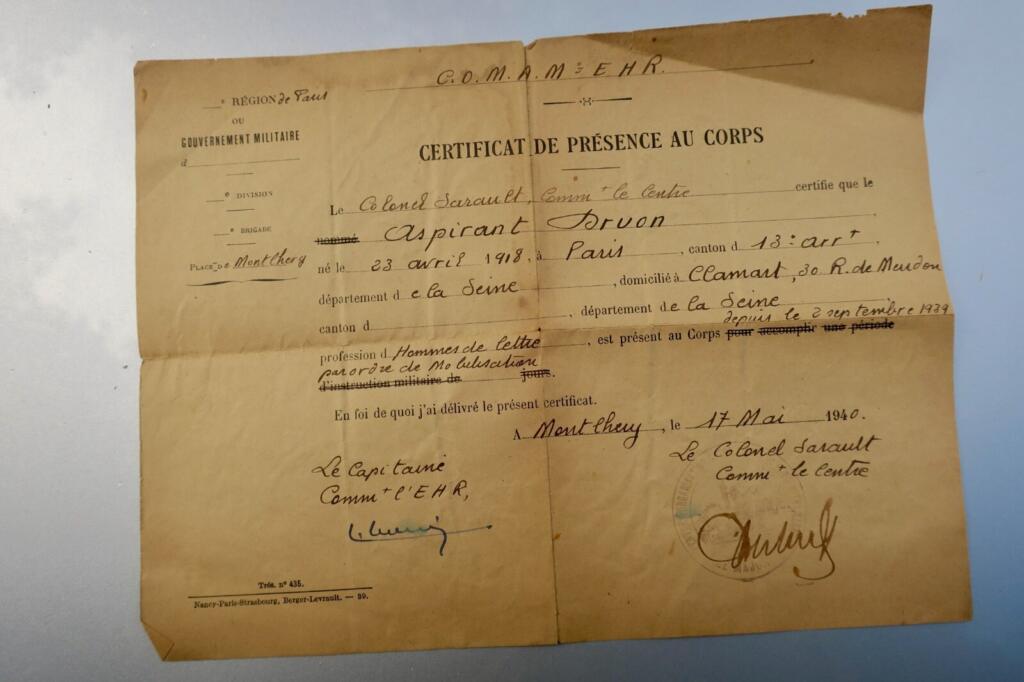 C.O.M.A.M = E H R.
__e RÉGION de Paris
OU
GOUVERNEMENT MILITAIRE
d
__e DIVISION
__e BRIGADE
PLACE DE Montlhery
CERTIFICAT DE PRÉSENCE AU CORPS
Le Colonel Sarault, Commt le Centre certifie que le
nommé Aspirant Druon
né le 23 avril 1918, à Paris, canton d 13e arrt,
département de la Seine, domicilié à Clamart, 30 R. de Meudon
canton d , département de la Seine
depuis le 2 septembre 1939
profession d Hommes de lettre, est présent au Corps pour accomplir une période
par ordre de Mobilisation
d'instruction militaire de jours.
En foi de quoi j'ai délivré le présent certificat.
A Montlhery, le 17 Mai 1940.
Le Capitaine
Commt l'EHR,
Le Colonel Sarault
Commt le Centre
Trés. n° 435.
Nancy-Paris-Strasbourg, Berger-Levrault. — 39.